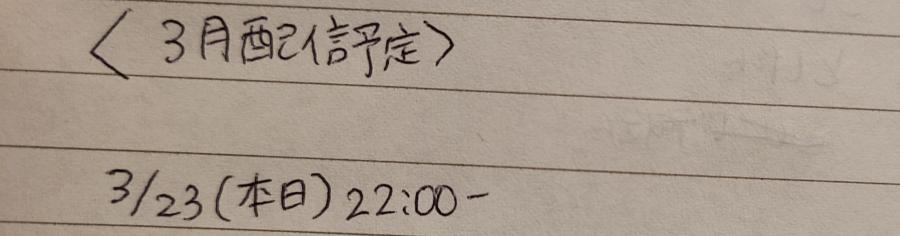 〈 3月配信予定〉
3/23(本日) 22:00-